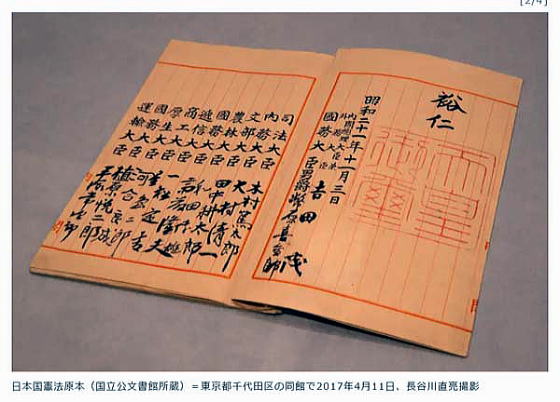 [2/4]
裕仁
天皇御璽
昭和二十一年十一月三日
內閣總理大臣兼
外務大臣
吉田茂
國務大臣 男爵 幣原喜重郎
司法大臣 木村篤太郎
內務大臣 大村清一
文部大臣 田中耕太郎
農林大臣 和田博雄
國務大臣 斎藤隆夫
遞信大臣 一松定吉
商工大臣 星島二郎
厚生大臣 河合良成
國務大臣 植原悦二郎
運輸大臣 平塚常次郎
日本国憲法原本（国立公文書館所蔵）＝東京都千代田区の同館で2017年4月11日、長谷川直亮撮影